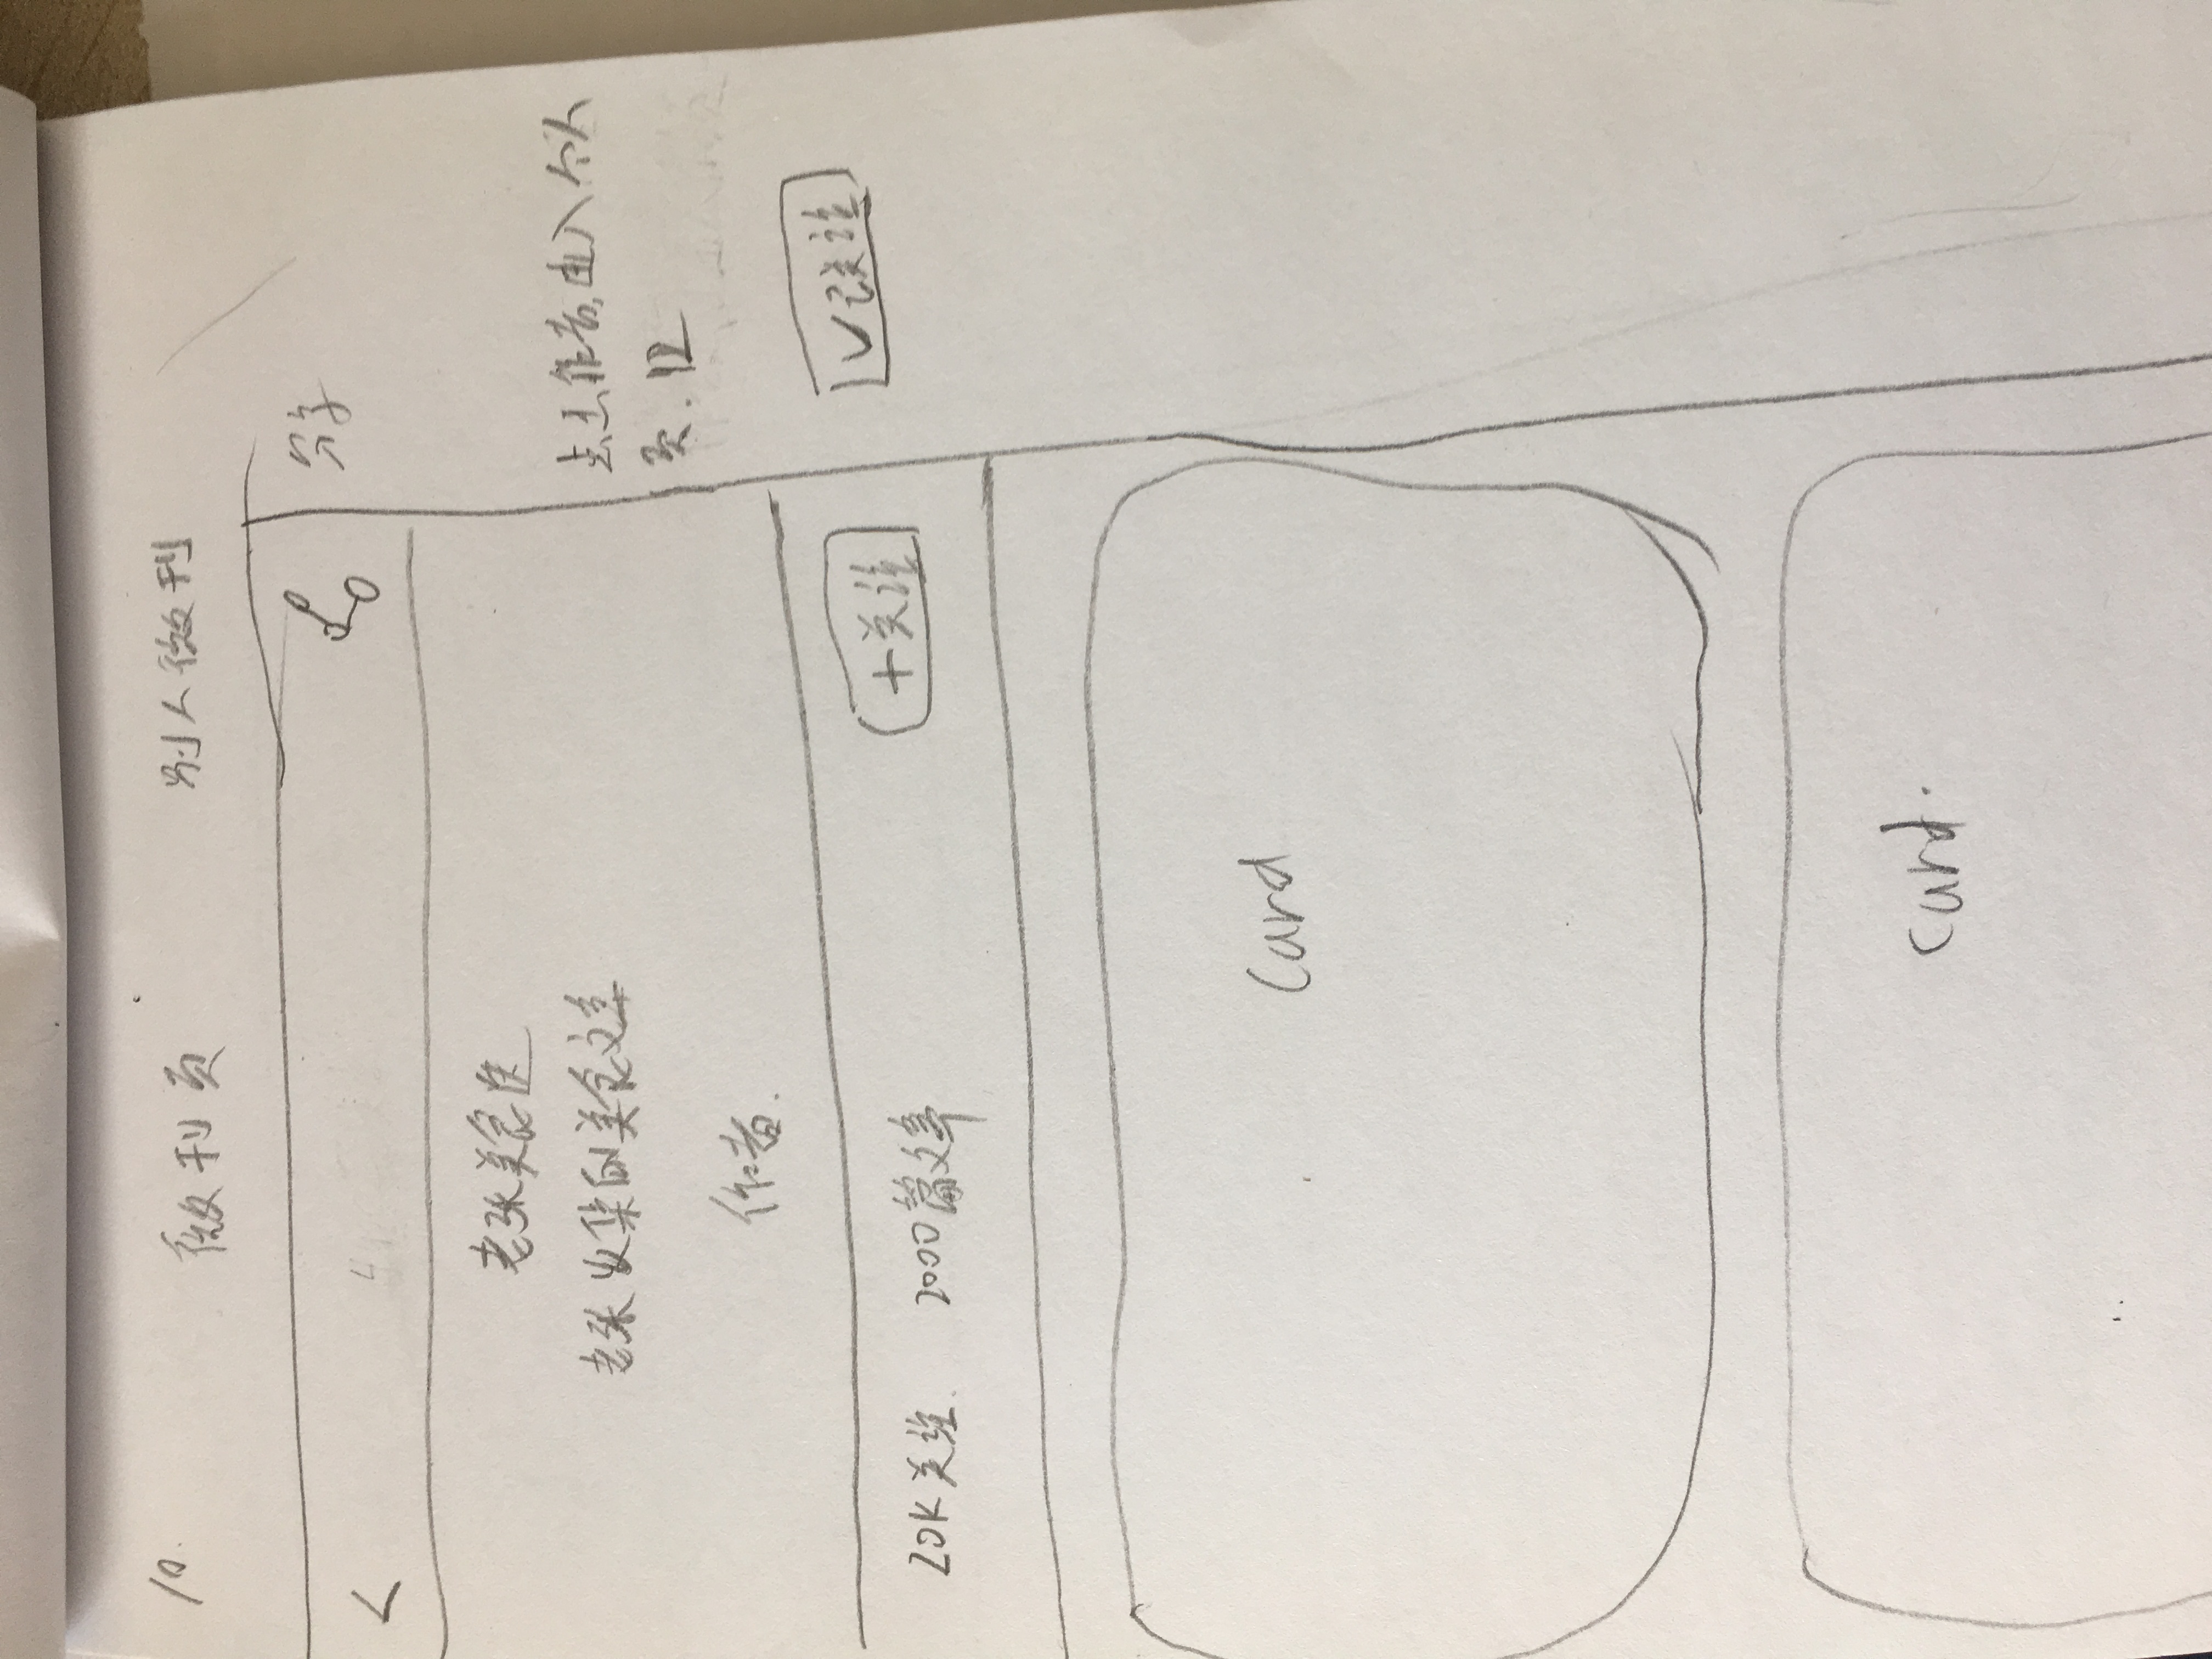 10. 微刊页 别人微刊
< 分享
老张美食
老张收集的美食文章
作者.
点击作者,进入个人
页. 12
20K关注. 2000篇文章 +关注 ✓已关注
Card
Card.